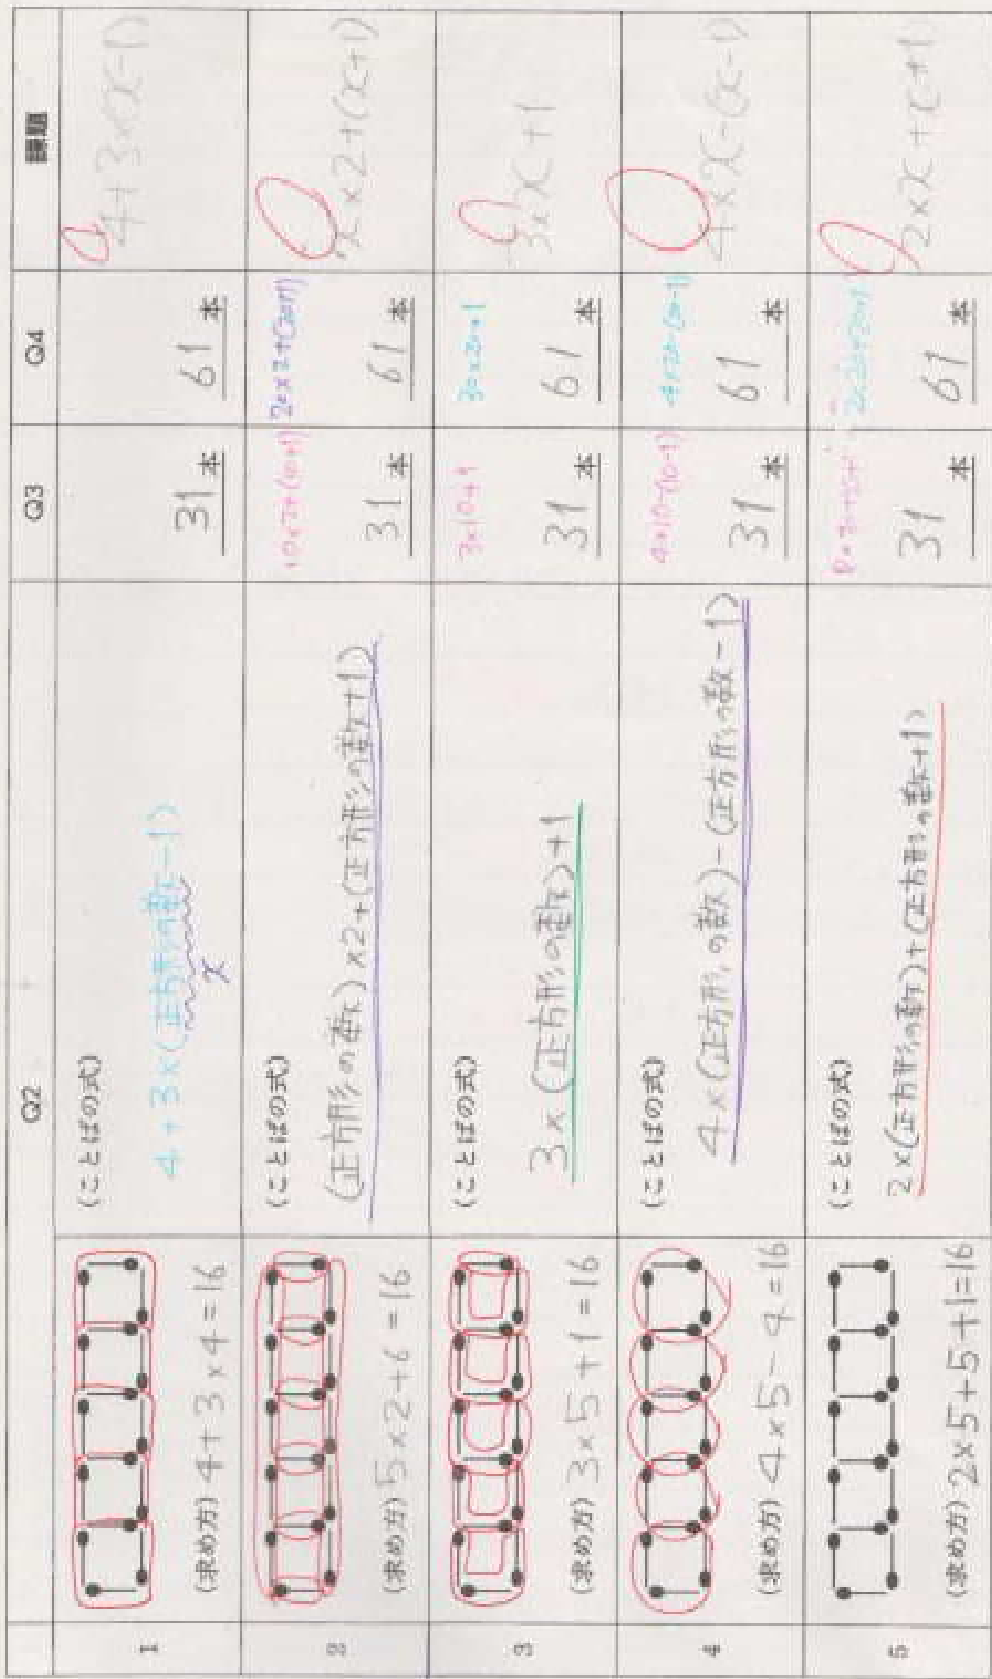 Q2
Q3
Q4
課題
1
(求め方) 4+3×4=16
(ことばの式)
4+3×(正方形の数-1)
x
31本
61本
4+3×(x-1)
2
(求め方) 5×2+6=16
(ことばの式)
(正方形の数)×2+(正方形の数+1)
10×2+(10+1)
31本
20×2+(20+1)
61本
x×2+(x+1)
3
(求め方) 3×5+1=16
(ことばの式)
3×(正方形の数)+1
3×10+1
31本
61本
3×x+1
4
(求め方) 4×5-4=16
(ことばの式)
4×(正方形の数)-(正方形の数-1)
4×10-(10-1)
31本
4×20-(20-1)
61本
4×x-(x-1)
5
(求め方) 2×5+5+1=16
(ことばの式)
2×(正方形の数)+(正方形の数+1)
31本
61本
2×x+(x+1)